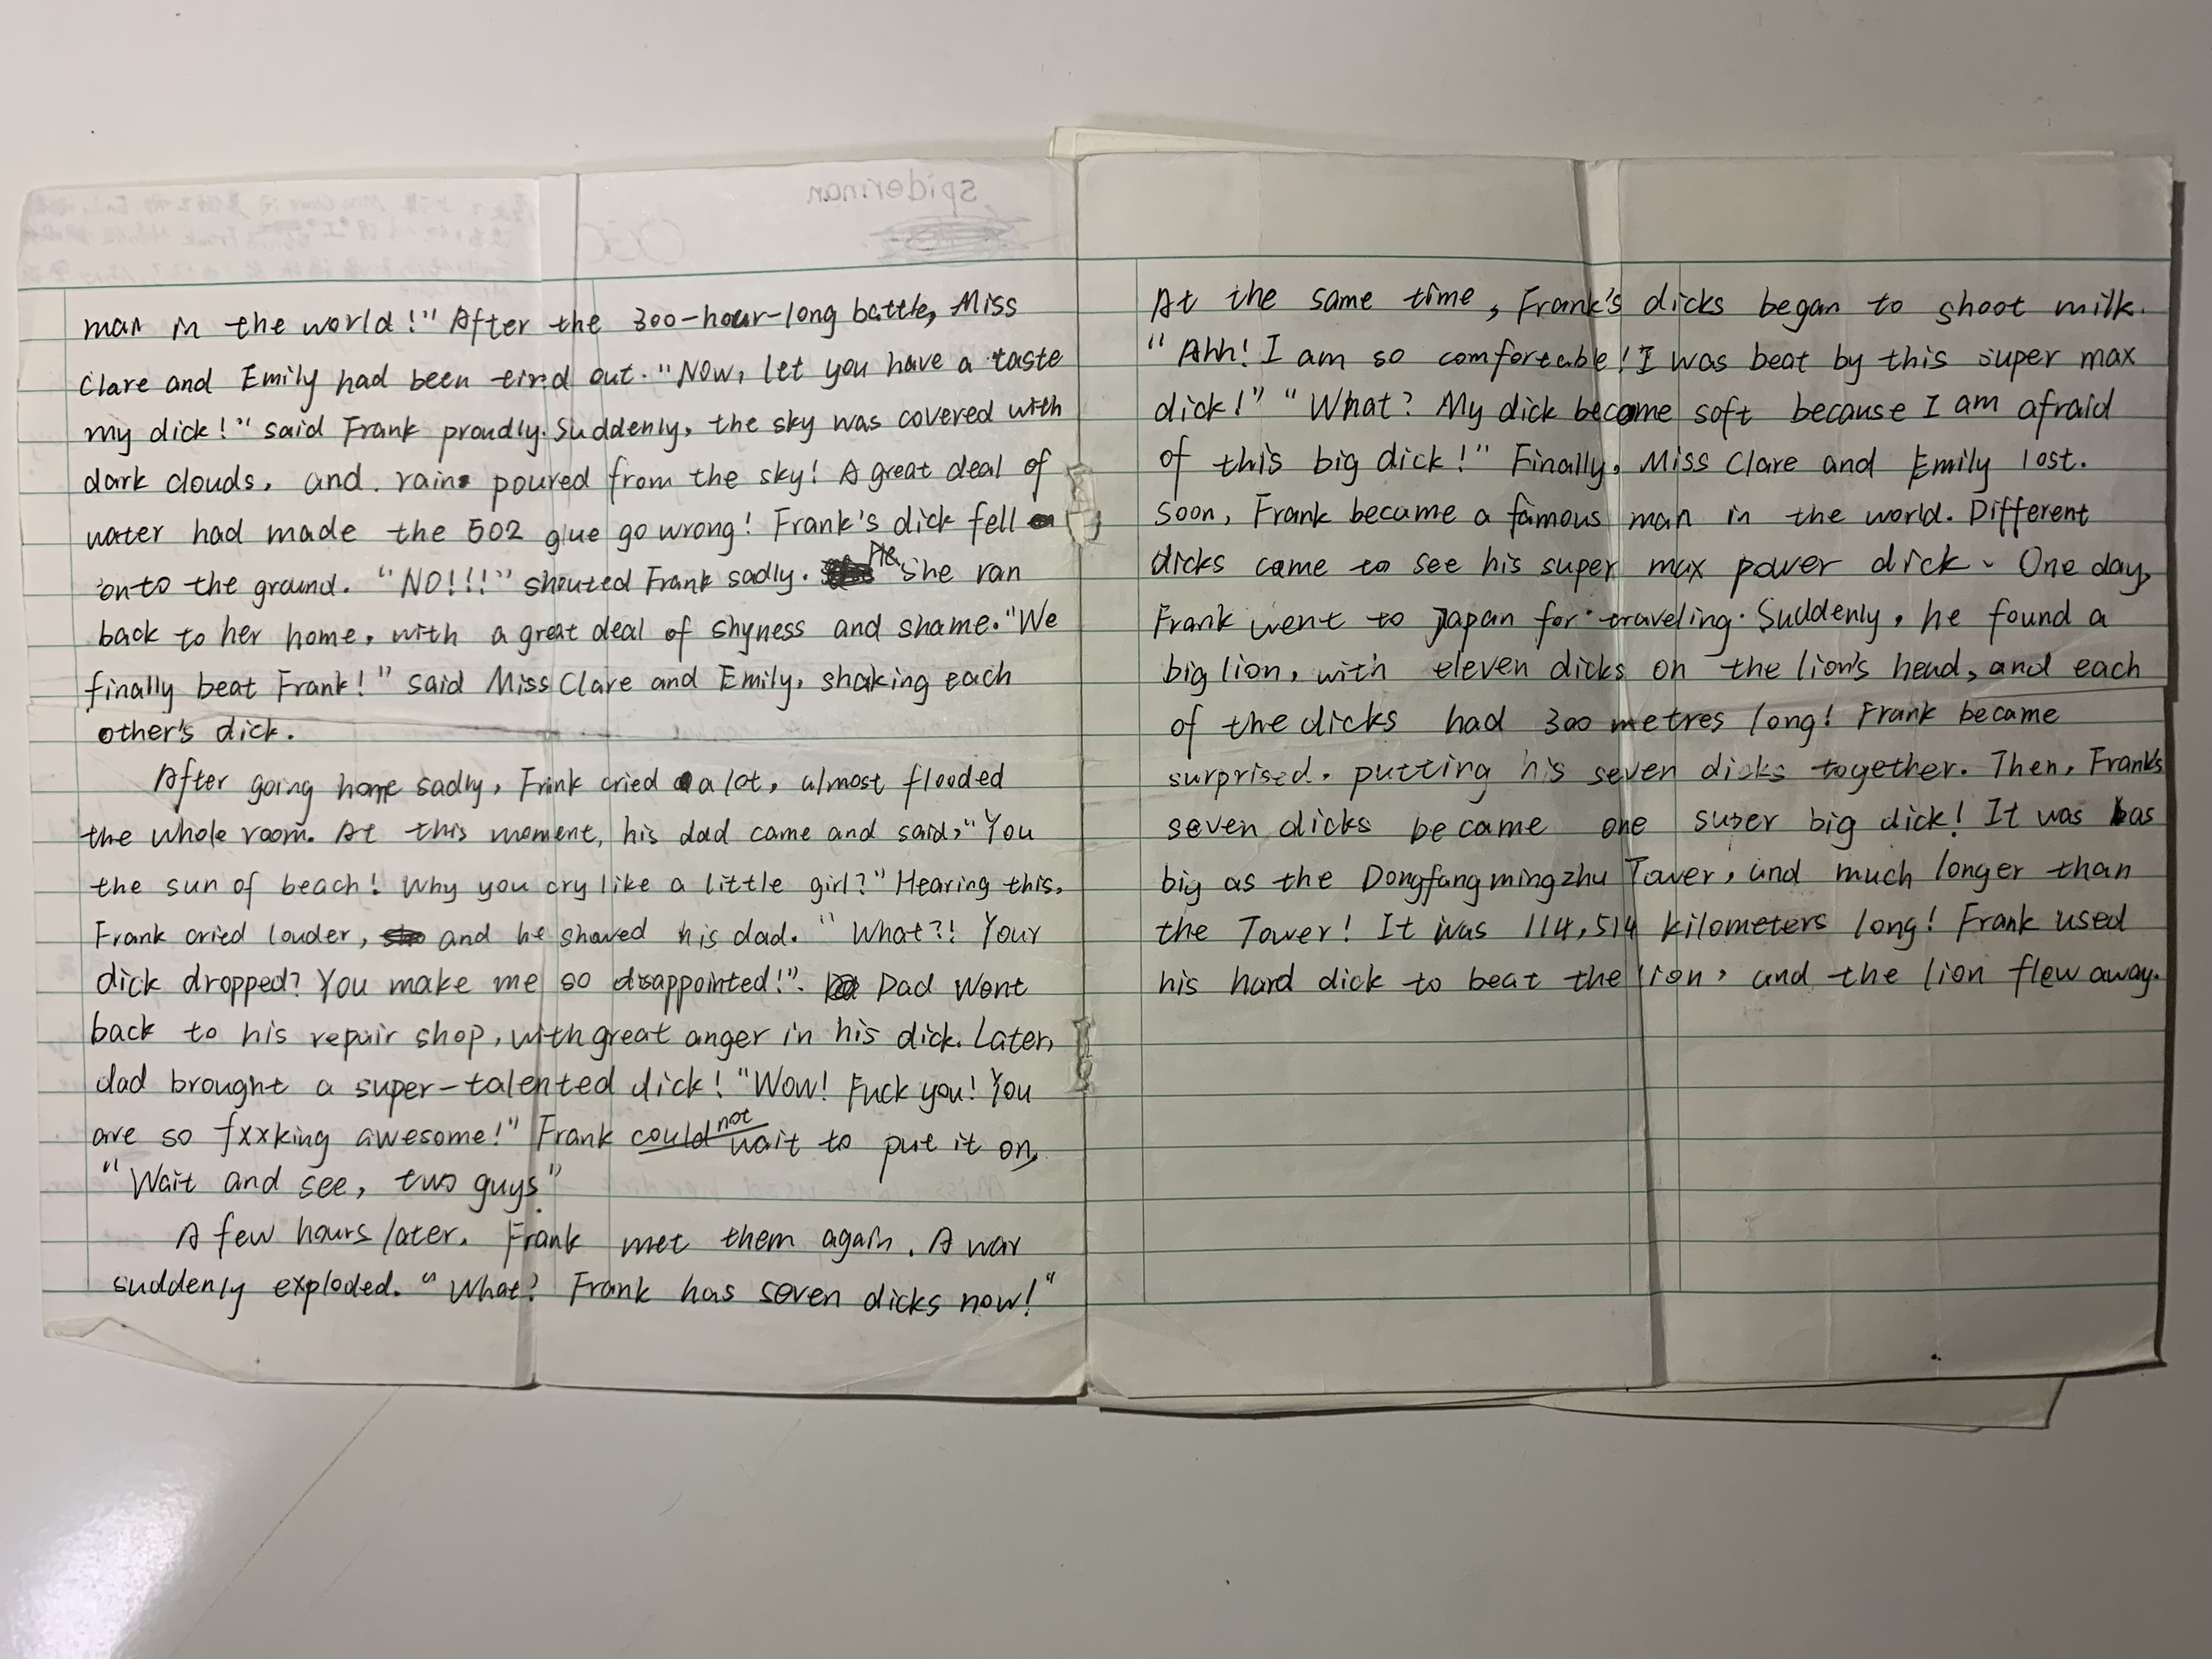 man in the world!" After the 300-hour-long battle, Miss
Clare and Emily had been tired out. "Now, let you have a taste
my dick!" said Frank proudly. Suddenly, the sky was covered with
dark clouds, and rain poured from the sky! A great deal of
water had made the 502 glue go wrong! Frank's dick fell
onto the ground. "NO!!!" shouted Frank sadly. He she ran
back to her home, with a great deal of shyness and shame. "We
finally beat Frank!" said Miss Clare and Emily, shaking each
other's dick.
After going home sadly, Frank cried a lot, almost flooded
the whole room. At this moment, his dad came and said, "You
the sun of beach! Why you cry like a little girl?" Hearing this,
Frank cried louder, and he showed his dad. "What?! Your
dick dropped? You make me so disappointed!". Dad went
back to his repair shop, with great anger in his dick. Later,
dad brought a super-talented dick! "Wow! Fuck you! You
are so fxxking awesome!" Frank could not wait to put it on,
"Wait and see, two guys."
A few hours later, Frank met them again. A war
suddenly exploded. "What? Frank has seven dicks now!"
At the same time, Frank's dicks began to shoot milk.
"Ahh! I am so comfortable! I was beat by this super max
dick!" "What? My dick become soft because I am afraid
of this big dick!" Finally, Miss Clare and Emily lost.
Soon, Frank became a famous man in the world. Different
dicks came to see his super max power dick. One day,
Frank went to Japan for traveling. Suddenly, he found a
big lion, with eleven dicks on the lion's head, and each
of the dicks had 300 metres long! Frank became
surprised. putting his seven dicks together. Then, Frank's
seven dicks became one super big dick! It was as
big as the Dongfangmingzhu Tower, and much longer than
the Tower! It was 114,514 kilometers long! Frank used
his hard dick to beat the lion, and the lion flew away.
spiderman